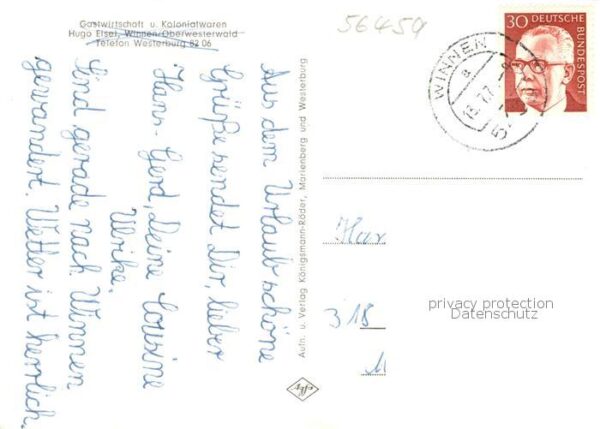 Gastwirtschaft u. Kolonialwaren
Hugo Eisel, Winnen-Oberwesterwald
Telefon Westerburg 82 06
56459
30 DEUTSCHE
BUNDESPOST
WINNEN
Aus dem Urlaub schöne
Grüße sendet Dir, lieber
Hans-Gerd, Deine Cousine
Ulrike.
Sind gerade nach Winnen
gewandert. Wetter ist herrlich.
Aufn. u. Verlag Königsmann-Röder, Marienberg und Westerburg
318
M
privacy protection
Datenschutz